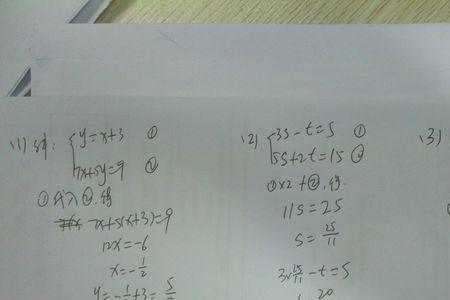 (1) 解: y=x+3 ①
7x+5y=9 ②
①代入②,得
7x+5(x+3)=9
12x=-6
x=-1/2
y=-1/2+3=5/2
(2) 3s-t=5 ①
5s+2t=15 ②
①×2+②,得
11s=25
s=25/11
3×25/11-t=5
20
(3)